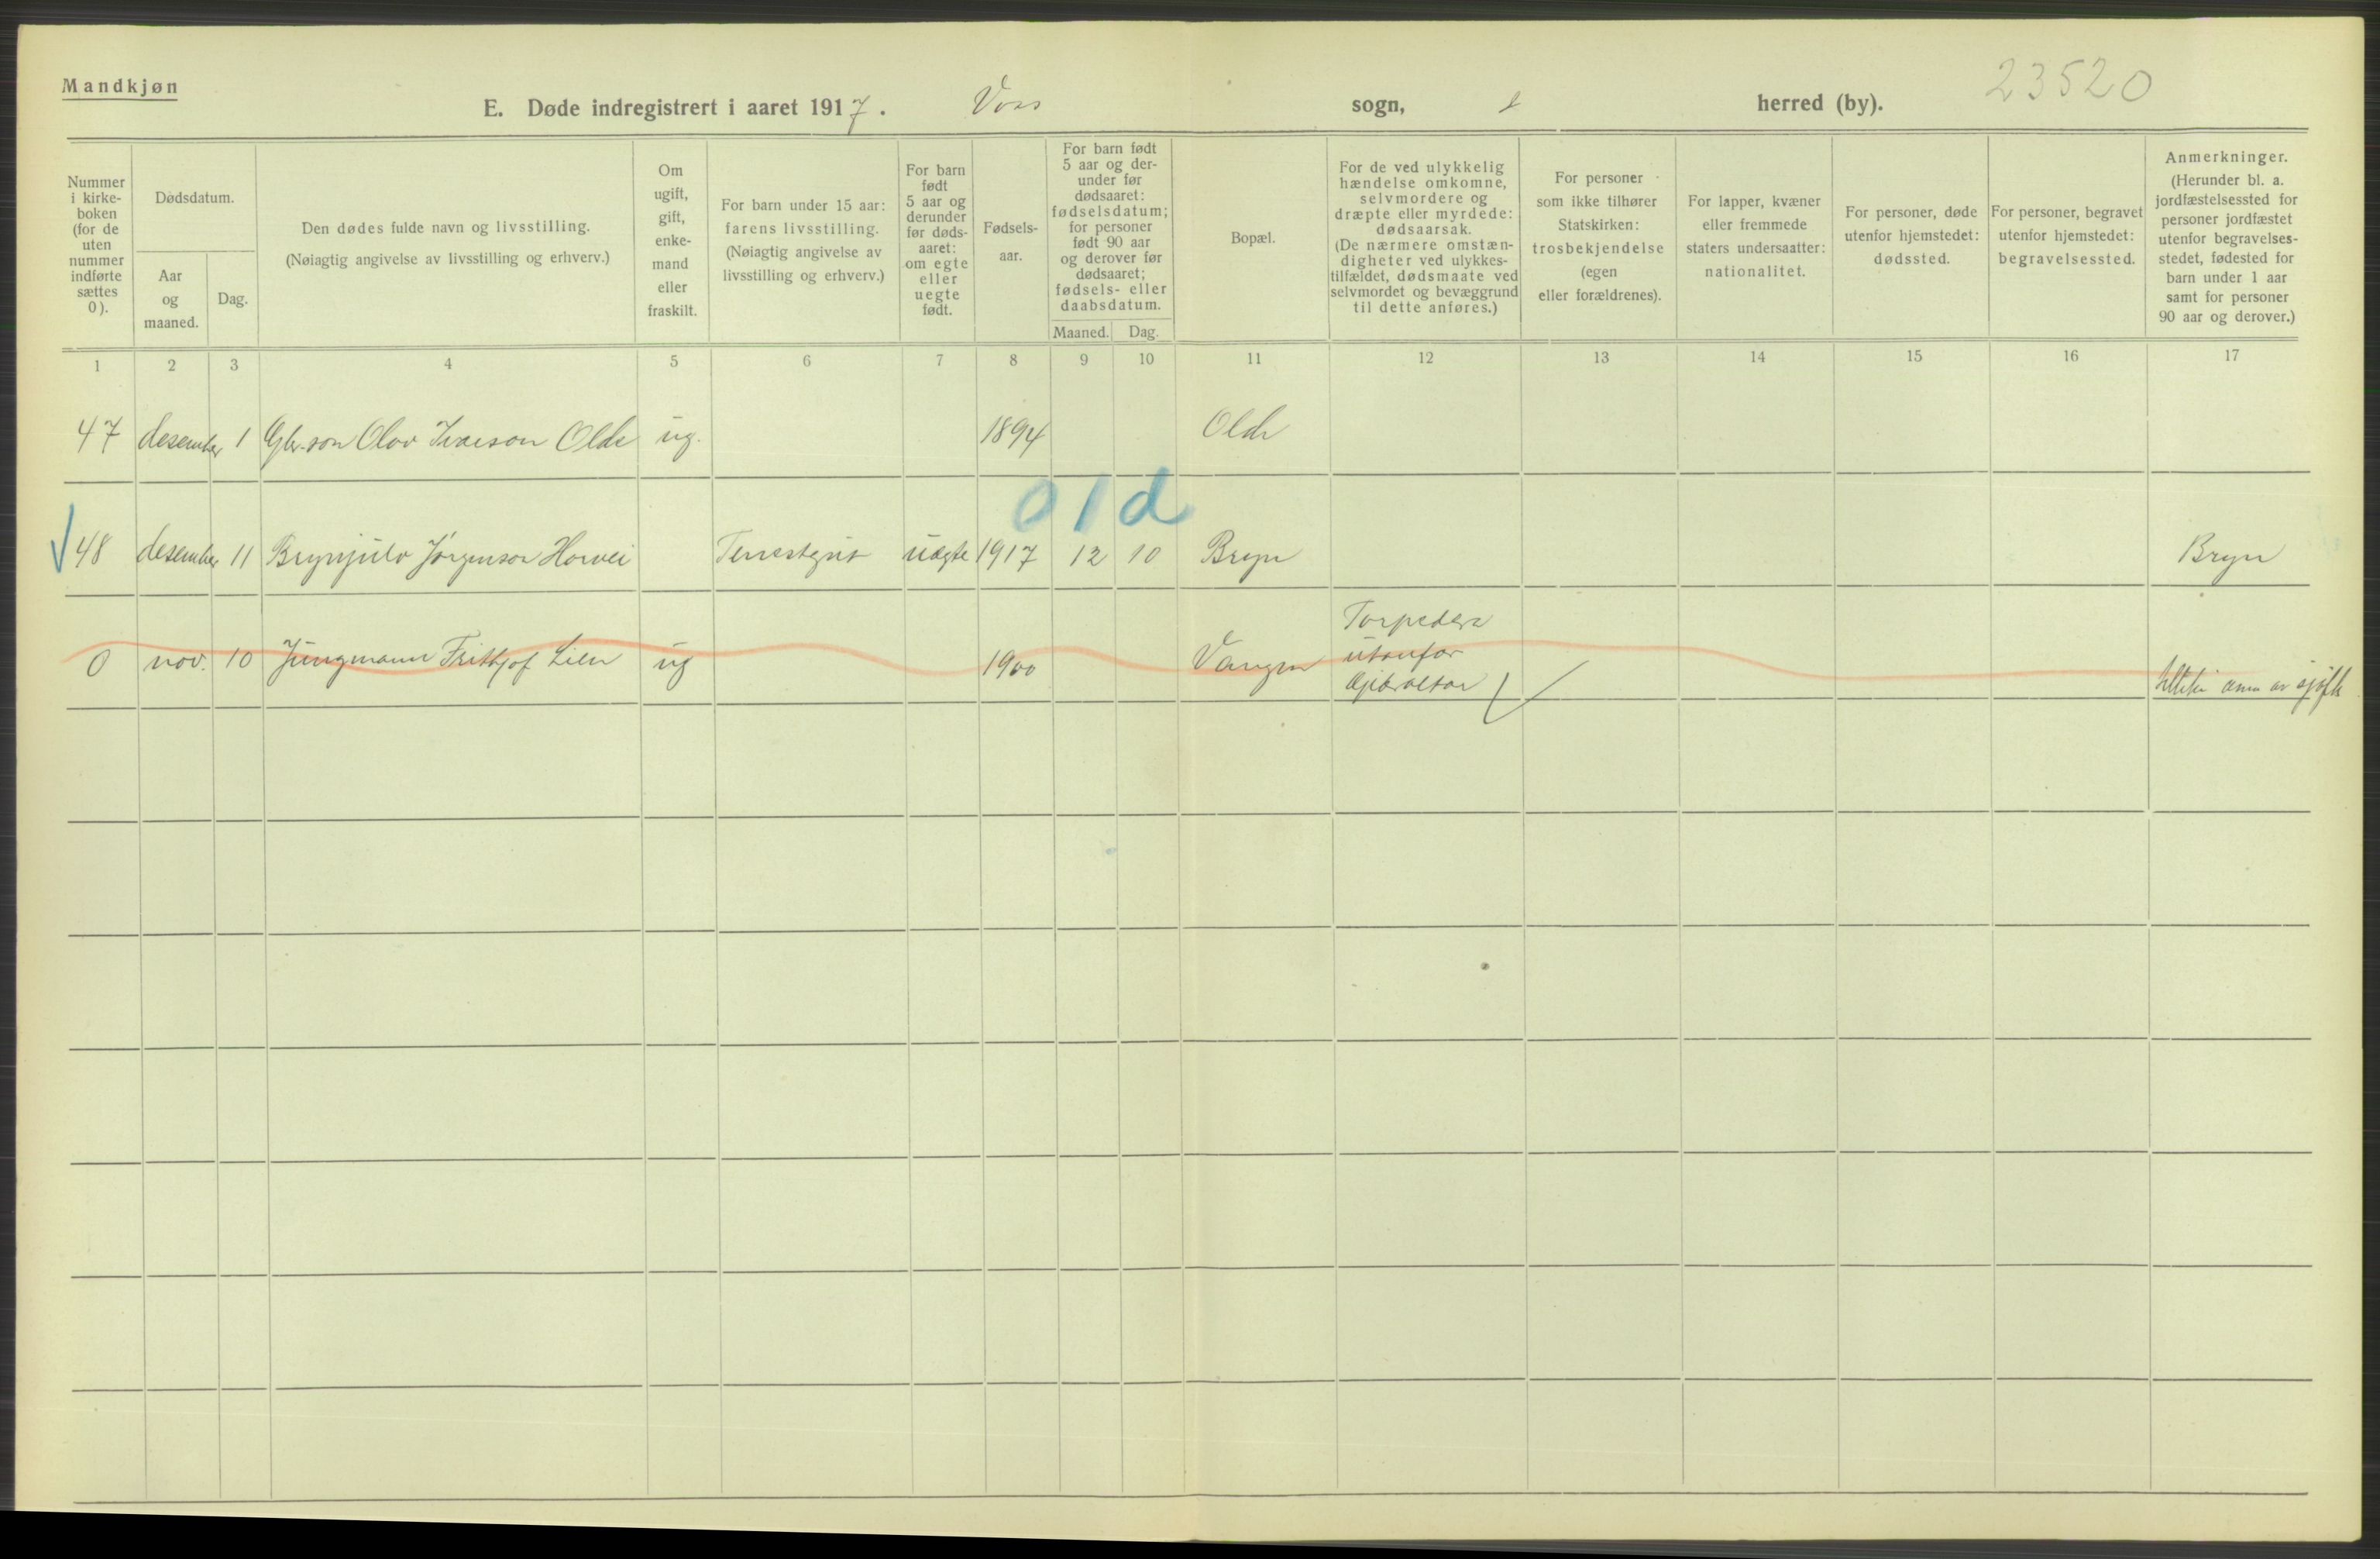 Mandkjøn
23520
E. Døde indregistrert i aaret 1917. Voss sogn, herred (by).
Nummer i kirke-boken (for de uten nummer indførte sættes 0).
Dødsdatum.
Aar og maaned.
Dag.
Den dødes fulde navn og livsstilling.
(Nøiagtig angivelse av livsstilling og erhverv.)
Om ugift, gift, enke-mand eller fraskilt.
For barn under 15 aar: farens livsstilling.
(Nøiagtig angivelse av livsstilling og erhverv.)
For barn født 5 aar og derunder før døds-aaret: om egte eller uegte født.
Fødsels-aar.
For barn født 5 aar og der-under før dødsaaret: fødselsdatum; for personer født 90 aar og derover før dødsaaret; fødsels- eller daabsdatum.
Maaned. Dag.
Bopæl.
For de ved ulykkelig hændelse omkomne, selvmordere og dræpte eller myrdede: dødsaarsak.
(De nærmere omstæn-digheter ved ulykkes-tilfældet, dødsmaate ved selvmordet og bevæggrund til dette anføres.)
For personer som ikke tilhører Statskirken: trosbekjendelse (egen eller forældrenes).
For lapper, kvæner eller fremmede staters undersaatter: nationalitet.
For personer, døde utenfor hjemstedet: dødssted.
For personer, begravet utenfor hjemstedet: begravelsessted.
Anmerkninger.
(Herunder bl. a. jordfæstelsessted for personer jordfæstet utenfor begravelses-stedet, fødested for barn under 1 aar samt for personer 90 aar og derover.)
1 2 3 4 5 6 7 8 9 10 11 12 13 14 15 16 17
47 desember 1 Gbr.son Olav Ivarson Olde ug. 1894 Olde
0 1 d
48 desember 11 Brynjulv Jørgenson Horvei Tenestegut uægte 1917 12 10 Bryn Bryn
0 nov. 10 Jungmann Frithjof Lien ug 1900 Vangen Torpedera utanfor Gjibraltar av sjøfk